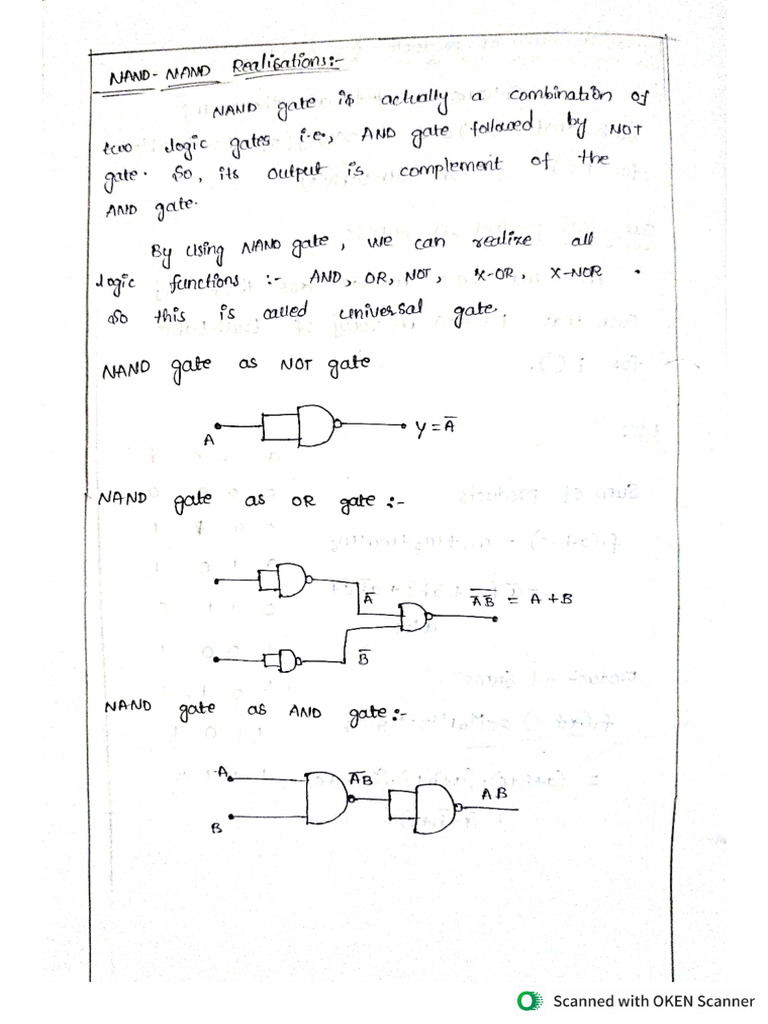 NAND-NAND Realisations:-
NAND gate is actually a combination of
two logic gates i.e., AND gate followed by NOT
gate. So, its output is complement of the
AND gate.
By using NAND gate, we can realize all
logic functions :- AND, OR, NOT, X-OR, X-NOR.
so this is called universal gate.
NAND gate as NOT gate
A
Y = A̅
NAND gate as OR gate :-
A̅
A̅ B̅ = A + B
B̅
NAND gate as AND gate:-
A
A̅B̅
AB
B
Scanned with OKEN Scanner